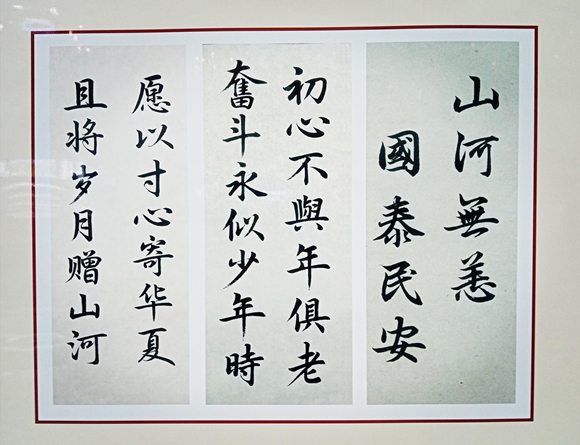 山河無恙
國泰民安
初心不與年俱老
奮斗永似少年時
愿以寸心寄华夏
且将岁月赠山河